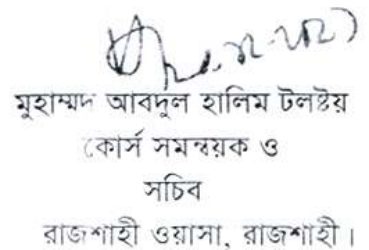 মুহাম্মদ আবদুল হালিম টলষ্টয়
কোর্স সমন্বয়ক ও
সচিব
রাজশাহী ওয়াসা, রাজশাহী।